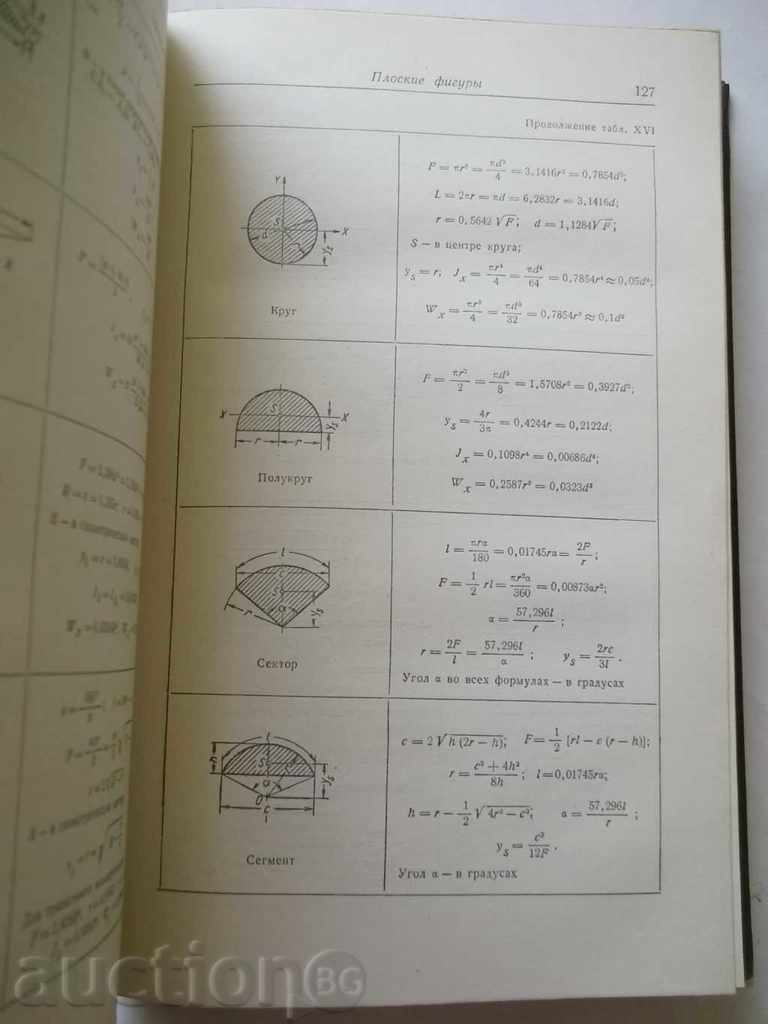 Плоские фигуры
127
Продолжение табл. XVI
Y
S
X
d
r
y_s
Круг
F = πr² = πd²/4 = 3,1416r² = 0,7854d²;
L = 2πr = πd = 6,2832r = 3,1416d;
r = 0,5642 √F; d = 1,1284√F;
S — в центре круга;
y_s = r, J_x = πr⁴/4 = πd⁴/64 = 0,7854r⁴ ≈ 0,05d⁴;
W_x = πr³/4 = πd³/32 = 0,7854r³ ≈ 0,1d³
X S X
y_s
r r
Полукруг
F = πr²/2 = πd²/8 = 1,5708r² = 0,3927d²;
y_s = 4r/3π = 0,4244r = 0,2122d;
J_x = 0,1098r⁴ = 0,00686d⁴;
W_x = 0,2587r³ = 0,0323d³
l
c
S
y_s
α
r
Сектор
l = πrα/180 = 0,01745rα = 2F/r;
F = 1/2 rl = πr²α/360 = 0,00873αr²;
α = 57,296l/r;
r = 2F/l = 57,296l/α; y_s = 2rc/3l.
Угол α во всех формулах — в градусах
l
h
S
r
y_s
α
O
c
Сегмент
c = 2√h (2r — h); F = 1/2 [rl — c (r — h)];
r = c² + 4h²/8h; l = 0,01745rα;
h = r — 1/2 √4r² — c²; α = 57,296l/r;
y_s = c³/12F.
Угол α — в градусах
auction BG